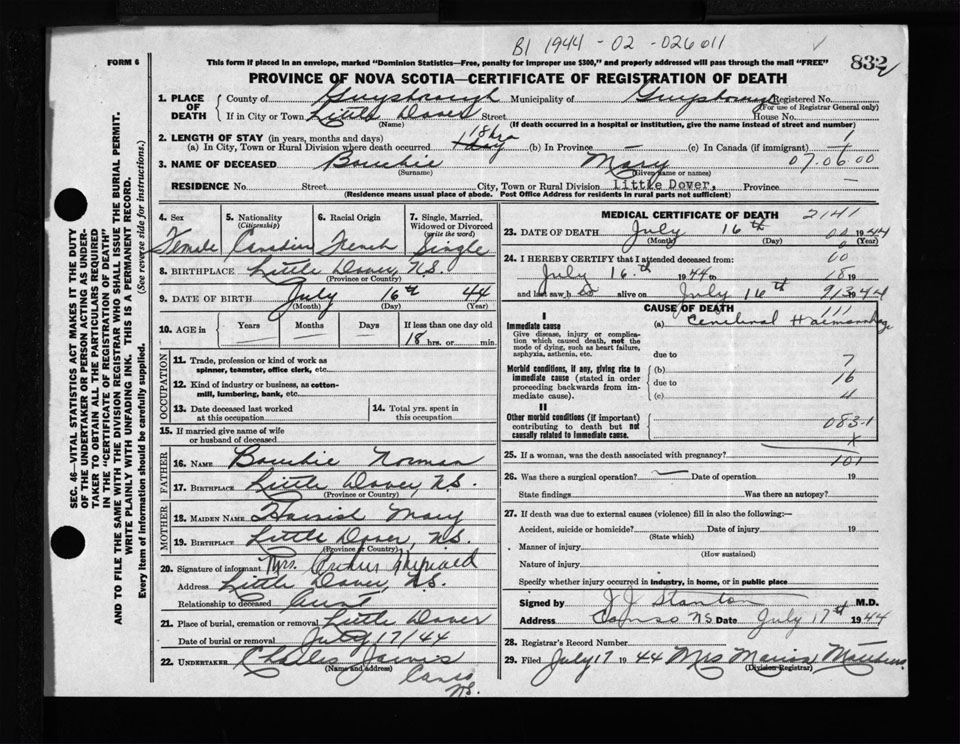 B1 1944 - 02 - 026011
FORM 6
This form if placed in an envelope, marked "Dominion Statistics—Free, penalty for improper use $300," and properly addressed will pass through the mail "FREE"
832
PROVINCE OF NOVA SCOTIA—CERTIFICATE OF REGISTRATION OF DEATH
1. PLACE OF DEATH
County of Guysborough Municipality of Guysborough Registered No.
(For use of Registrar General only)
If in City or Town Little Dover Street House No.
(Name) (If death occurred in a hospital or institution, give the name instead of street and number)
2. LENGTH OF STAY (in years, months and days)
(a) In City, Town or Rural Division where death occurred 18 hrs 1 day (b) In Province (c) In Canada (if immigrant)
3. NAME OF DECEASED Bouchie Mary 07.06 00
(Surname) (Given name or names)
RESIDENCE No. Street City, Town or Rural Division Little Dover, Province
(Residence means usual place of abode. Post Office Address for residents in rural parts not sufficient)
4. Sex Female
5. Nationality (Citizenship) Canadian
6. Racial Origin French
7. Single, Married, Widowed or Divorced (write the word) Single
8. BIRTHPLACE Little Dover, N.S.
(Province or Country)
9. DATE OF BIRTH July 16th 44
(Month) (Day) (Year)
10. AGE in Years Months Days If less than one day old
18 hrs. or min.
OCCUPATION
11. Trade, profession or kind of work as spinner, teamster, office clerk, etc.
12. Kind of industry or business, as cotton-mill, lumbering, bank, etc.
13. Date deceased last worked at this occupation
14. Total yrs. spent in this occupation
15. If married give name of wife or husband of deceased
FATHER
16. NAME Bouchie Norman
17. BIRTHPLACE Little Dover, N.S.
(Province or Country)
MOTHER
18. MAIDEN NAME Mary
19. BIRTHPLACE Little Dover, N.S.
(Province or Country)
20. Signature of informant Mrs.
Address Little Dover, N.S.
Relationship to deceased Aunt
21. Place of burial, cremation or removal Little Dover
Date of burial or removal July 17/44
22. UNDERTAKER Charles Jarvis
(Name and address)
Canso
N.S.
MEDICAL CERTIFICATE OF DEATH 2141
23. DATE OF DEATH July 16th 1944
(Month) (Day) (Year)
24. I HEREBY CERTIFY that I attended deceased from:
July 16th 1944 to 19
and last saw h alive on July 16th 1944
CAUSE OF DEATH
I
Immediate cause
Give disease, injury or complication which caused death, not the mode of dying, such as heart failure, asphyxia, asthenia, etc.
(a) Cerebral Haemorrhage
due to
Morbid conditions, if any, giving rise to immediate cause (stated in order proceeding backwards from immediate cause).
(b) 7
due to 16
(c) 4
II
Other morbid conditions (if important) contributing to death but not causally related to immediate cause.
083-1
x
25. If a woman, was the death associated with pregnancy? 101
26. Was there a surgical operation? Date of operation 19
State findings Was there an autopsy?
27. If death was due to external causes (violence) fill in also the following:—
Accident, suicide or homicide? Date of injury 19
(State which)
Manner of injury
(How sustained)
Nature of injury
Specify whether injury occurred in industry, in home, or in public place
Signed by J J Stanton M.D.
Address Canso NS Date July 17th 1944
28. Registrar's Record Number
29. Filed July 17 1944 Mrs Marion Matthews
(Division Registrar)
SEC. 46—VITAL STATISTICS ACT MAKES IT THE DUTY
OF THE UNDERTAKER OR PERSON ACTING AS UNDER-
TAKER TO OBTAIN ALL THE PARTICULARS REQUIRED
IN THE "CERTIFICATE OF REGISTRATION OF DEATH"
AND TO FILE THE SAME WITH THE DIVISION REGISTRAR WHO SHALL ISSUE THE BURIAL PERMIT.
WRITE PLAINLY WITH UNFADING INK. THIS IS A PERMANENT RECORD.
Every item of information should be carefully supplied. (See reverse side for instructions.)